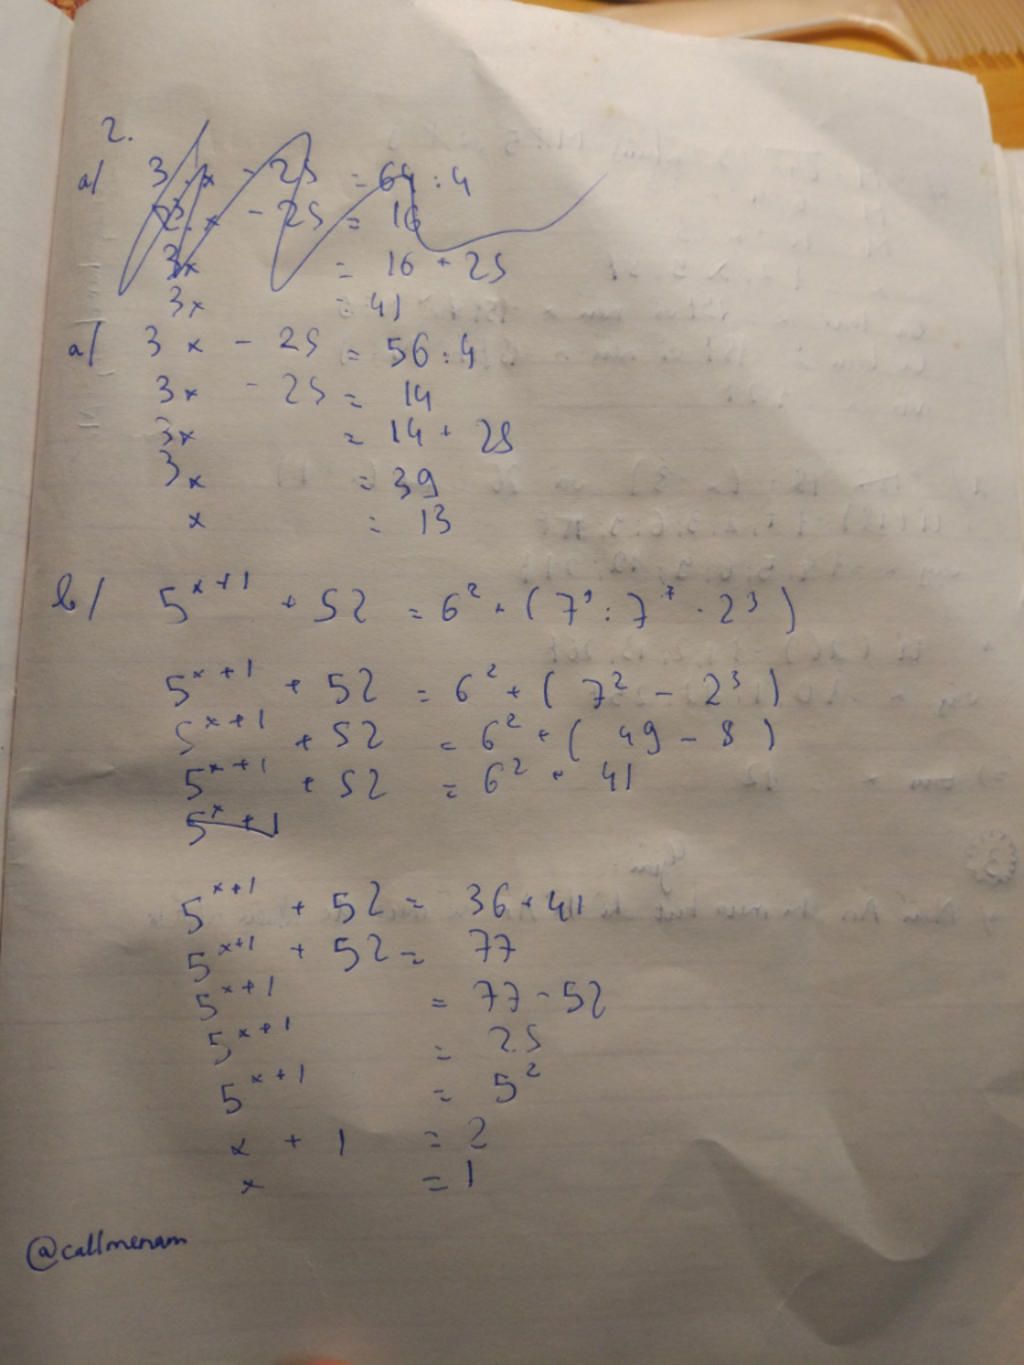 2.
a/ 3.x - 25 = 64 : 4
3.x - 25 = 16
3x = 16 + 25
3x = 41
a/ 3x - 25 = 56 : 4
3x - 25 = 14
3x = 14 + 25
3x = 39
x = 13
b/ 5^{x+1} + 52 = 6² + (7⁹ : 7⁷ - 2³)
5^{x+1} + 52 = 6² + (7² - 2³)
5^{x+1} + 52 = 6² + (49 - 8)
5^{x+1} + 52 = 6² + 41
5^{x+1}
5^{x+1} + 52 = 36 + 41
5^{x+1} + 52 = 77
5^{x+1} = 77 - 52
5^{x+1} = 25
5^{x+1} = 5²
x + 1 = 2
x = 1
@callmenam